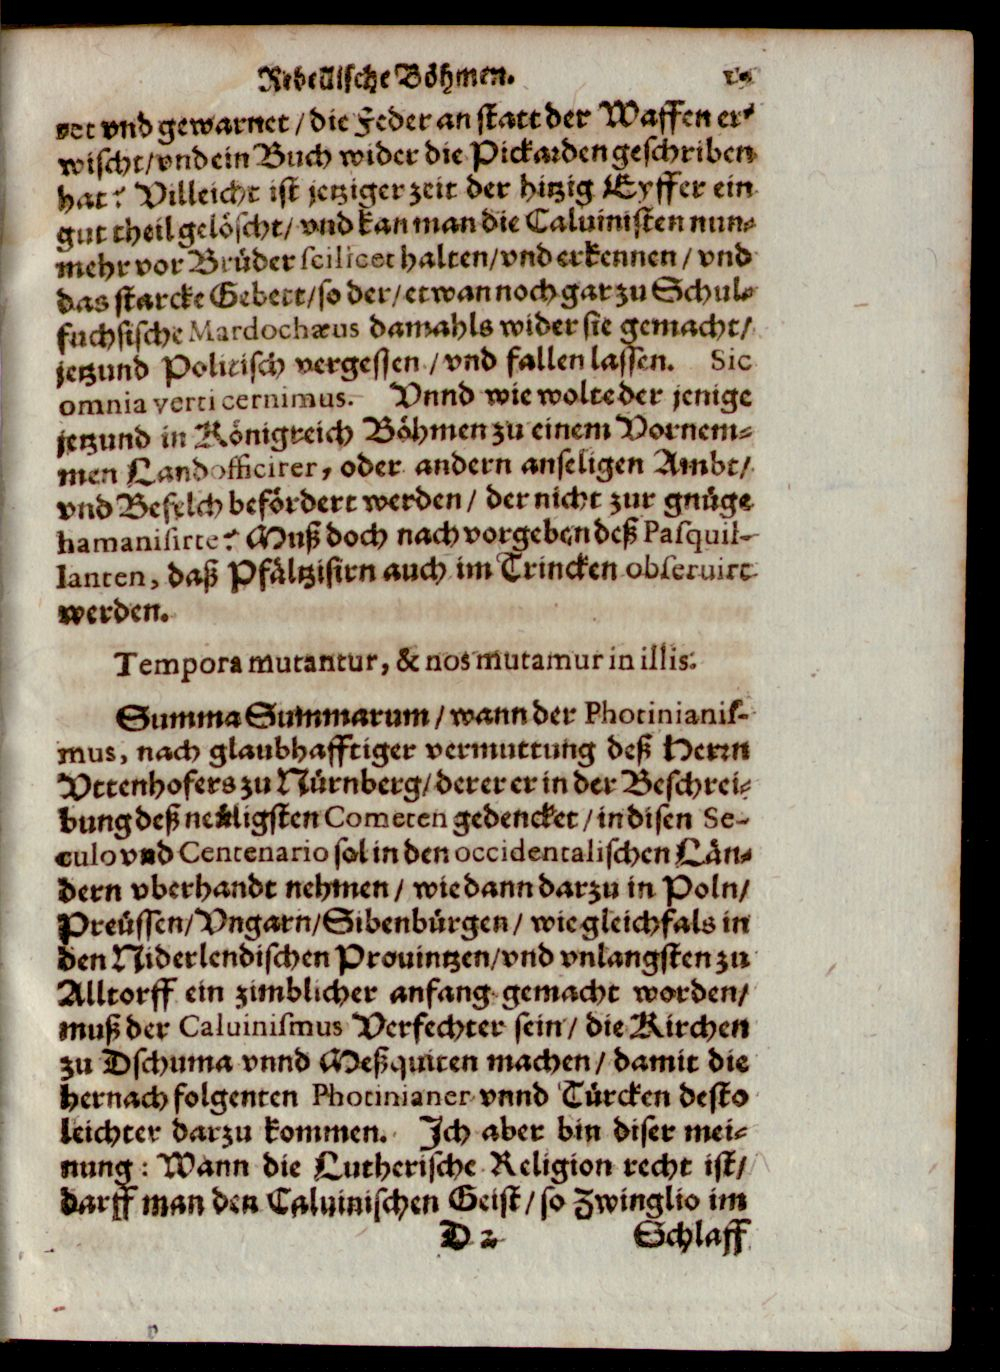 Rebellische Böhmen.
net vnd gewarnet / die Feder an statt der Waffen er⸗
wischt / vnd ein Buch wider die Pickarden geschriben
hat? Villeicht ist jetziger zeit der hitzig Eyffer ein
gut theil gelöscht / vnd kan man die Caluinisten nun⸗
mehr vor Brüder scilicet halten / vnd erkennen / vnd
das starcke Gebett / so der / etwan noch gar zu Schul⸗
fuchsische Mardochæus damahls wider sie gemacht /
jetzund Politisch vergessen / vnd fallen lassen. Sic
omnia verti cernimus. Vnnd wie wolte der jenige
jetzund in Königreich Böhmen zu einem Vornem⸗
men Landofficirer, oder andern anseligen Ambt /
vnd Befelch befördert werden / der nicht zur gnüge
hamanisirte? Muß doch nach vorgeben deß Pasquil-
lanten, daß Pfältzisirn auch im Trincken obseruirt
werden.
Tempora mutantur, & nos mutamur in illis.
Summa Summarum / wann der Photinianis-
mus, nach glaubhafftiger vermuttung deß Herrn
Vttenhofers zu Nürnberg / derer er in der Beschrei⸗
bung deß neüligsten Cometen gedencket / in disen Se-
culo vnd Centenario sol in den occidentalischen Län⸗
dern vberhandt nehmen / wie dann darzu in Poln /
Preüssen / Vngarn / Sibenbürgen / wie gleichfals in
den Niderlendischen Prouintzen / vnd vnlangsten zu
Alltorff ein zimblicher anfang gemacht worden /
muß der Caluinismus Verfechter sein / die Kirchen
zu Dschuma vnnd Meßquiten machen / damit die
hernach folgenten Photinianer vnnd Türcken desto
leichter darzu kommen. Ich aber bin diser mei⸗
nung: Wann die Lutherische Religion recht ist /
darff man den Caluinischen Geist / so Zwinglio im
D 2 Schlaff